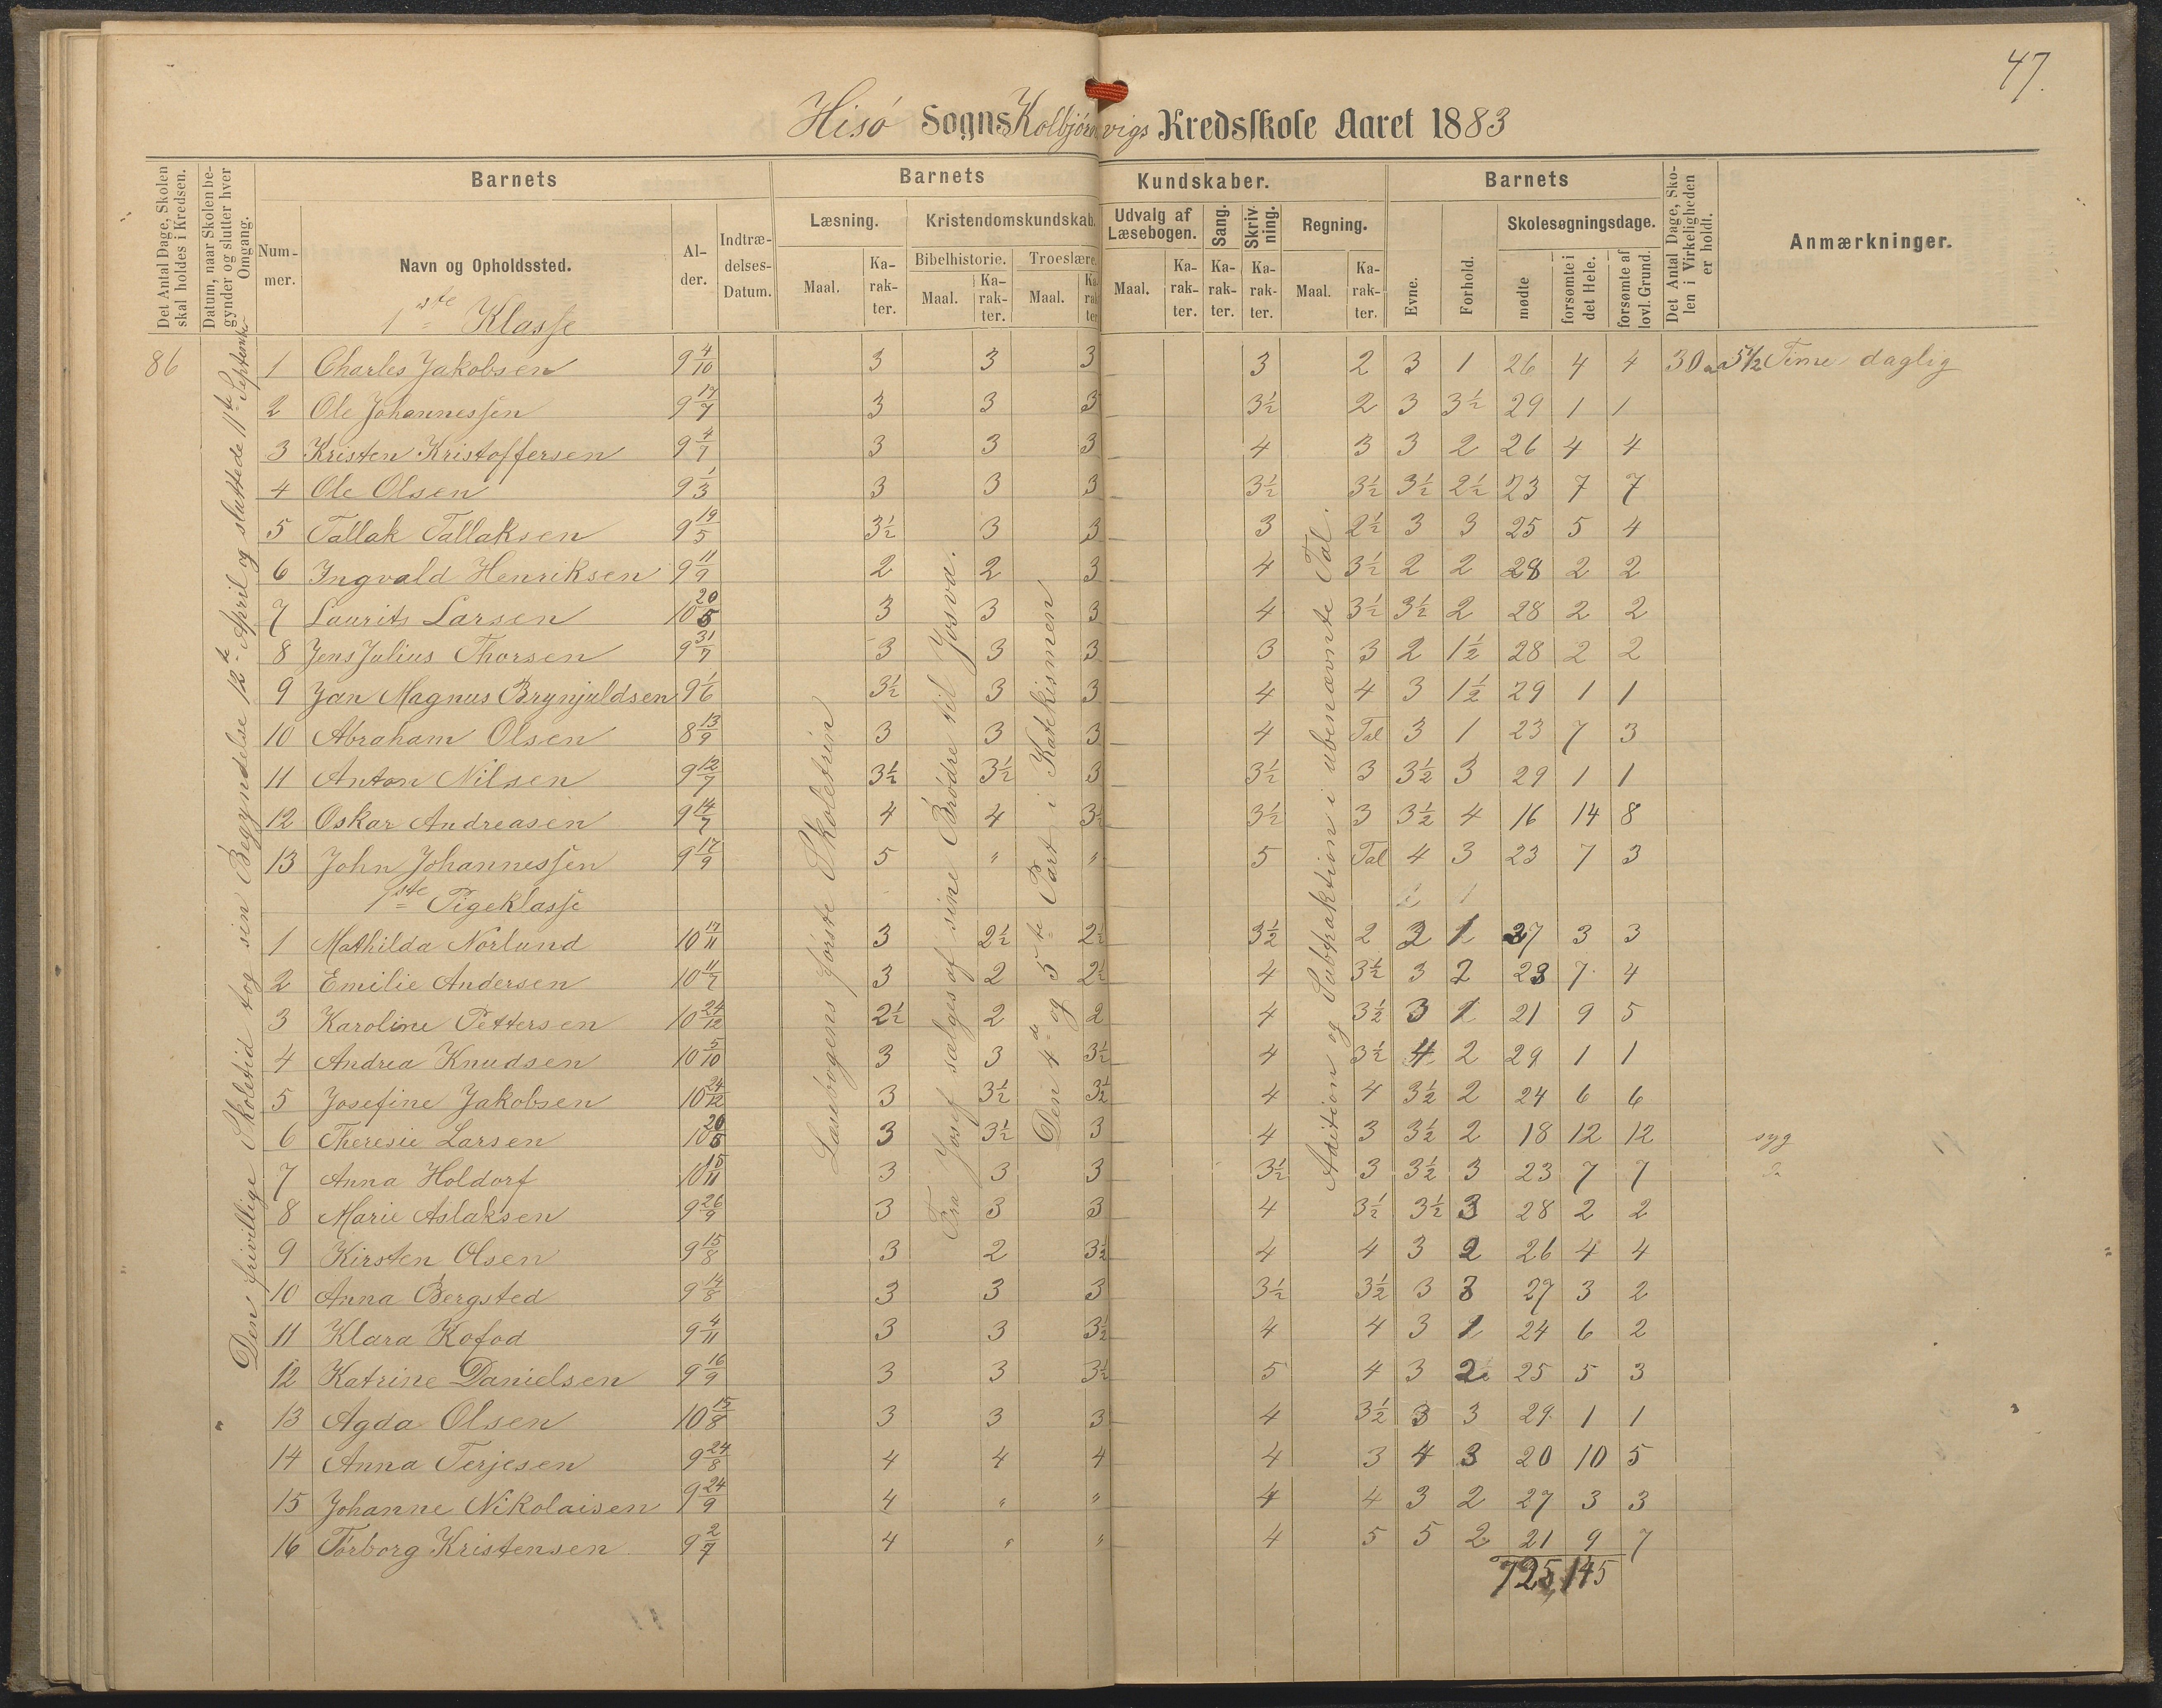 47.
Hisö Sogns Kolbjörnsvigs Kredsskole Aaret 1883
Det Antal Dage, Skolen skal holdes i Kredsen.
Datum, naar Skolen begynder og slutter hver Omgang.
Barnets
Barnets
Kundskaber.
Barnets
Det Antal Dage, Skolen i Virkeligheden er holdt.
Anmærkninger.
Nummer.
Navn og Opholdssted.
Alder.
Indtrædelses-Datum.
Læsning.
Kristendomskundskab.
Udvalg af Læsebogen.
Sang.
Skrivning.
Regning.
Evne.
Forhold.
Skolesøgningsdage.
Bibelhistorie.
Troeslære.
Maal.
Karakter.
Maal.
Karakter.
Maal.
Karakter.
Maal.
Karakter.
Karakter.
Karakter.
Maal.
Karakter.
mødte
forsømte i det Hele.
forsømte af lovl. Grund.
1ste Klasse
86 1 Charles Jakobsen 9 4/10 3 3 3 3 2 3 1 26 4 4 30 a 5 1/2 Time daglig
2 Ole Johannessen 9 17/7 3 3 3 3½ 2 3 3½ 29 1 1
3 Kristen Kristoffersen 9 4/7 3 3 3 4 3 3 2 26 4 4
4 Ole Olsen 9 1/3 3 3 3 3½ 3½ 3½ 2½ 23 7 7
5 Tallak Tallaksen 9 19/5 3½ 3 3 3 2½ 3 3 25 5 4
6 Ingvald Henriksen 9 11/9 2 2 3 4 3½ 2 2 28 2 2
7 Laurits Larsen 10 20/5 3 3 3 4 3½ 3½ 2 28 2 2
8 Jens Julius Thorsen 9 31/7 3 3 3 3 3 2 1½ 28 2 2
9 Jan Magnus Brynjuldsen 9 1/6 3½ 3 3 4 4 3 1½ 29 1 1
10 Abraham Olsen 8 13/9 3 3 3 4 Tal 3 1 23 7 3
11 Anton Nilsen 9 12/7 3½ 3½ 3 3½ 3 3½ 3 29 1 1
12 Oskar Andreasen 9 14/7 4 4 3½ 3½ 3 3½ 4 16 14 8
13 John Johannessen 9 17/9 5 " " 5 Tal 4 3 23 7 3
1ste Pigeklasse
1 Mathilda Norlund 10 17/11 3 2½ 2½ 3½ 2 3 1 27 3 3
2 Emilie Andersen 10 11/7 3 2 2½ 4 3½ 3 2 23 7 4
3 Karoline Pettersen 10 24/12 2½ 2 2 4 3½ 3 1 21 9 5
4 Andrea Knudsen 10 5/10 3 3 3½ 4 3½ 4 2 29 1 1
5 Josefine Jakobsen 10 24/12 3 3½ 3½ 4 4 3½ 2 24 6 6
6 Theresie Larsen 10 20/5 3 3½ 3 4 3 3½ 2 18 12 12 syg
7 Anna Holdorf 10 15/11 3 3 3 3½ 3 3½ 3 23 7 7
8 Marie Aslaksen 9 26/9 3 3 3 4 3½ 3½ 3 28 2 2
9 Kirsten Olsen 9 15/8 3 2 3½ 4 4 3 2 26 4 4
10 Anna Bergsted 9 14/8 3 3 3 3½ 3½ 3 3 27 3 2
11 Klara Kofod 9 4/11 3 3 3½ 4 4 3 1 24 6 2
12 Katrine Danielsen 9 16/9 3 3 3½ 5 4 3 2 25 5 3
13 Agda Olsen 10 15/8 3 3 3 4 3½ 3 3 29 1 1
14 Anna Terjesen 9 24/8 4 4 4 4 3 4 3 20 10 5
15 Johanne Nikolaisen 9 24/9 4 " " 4 4 3 2 27 3 3
16 Torborg Kristensen 9 2/7 4 " " 4 5 5 2 21 9 7
725, 145
Den frivillige Skoletid tog sin Begyndelse 12te April og sluttede 11te September
Læsebogens første Skoletrin
Fra Josef sælges af sine Brødre til Josva.
Den 4de og 5te Part i Katekismen
Adition og Subtraktion i ubenævnte Tal.